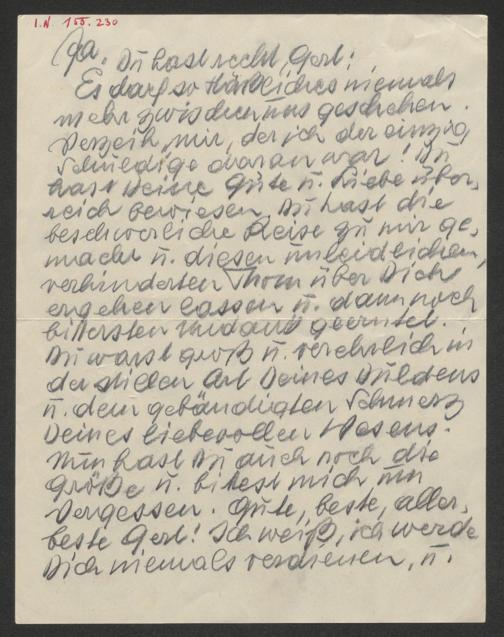 I.N. 155.230
Ja. Du hast recht, Gerl!
Es darf so Häßliches niemals
mehr zwischen uns geschehen.
Verzeih mir, der ich der einzig
Schuldige daran war! Du
hast Deine Güte u. Liebe über-
reich bewiesen. Du hast die
beschwerliche Reise zu mir ge-
macht u. diesen unleidlichen,
verhinderten Thom über Dich
ergehen lassen u. dann noch
bittersten Undank geerntet.
Du warst groß u. verehrlich in
der stillen Art Deines Duldens
u. dem gebändigten Schmerz
Deines liebevollen Wesens.
Nun hast Du auch noch die
Größe u. bittest mich um
Vergessen. Gute, beste, aller-
beste Gerl! Ich weiß, ich werde
Dich niemals verdienen, u.